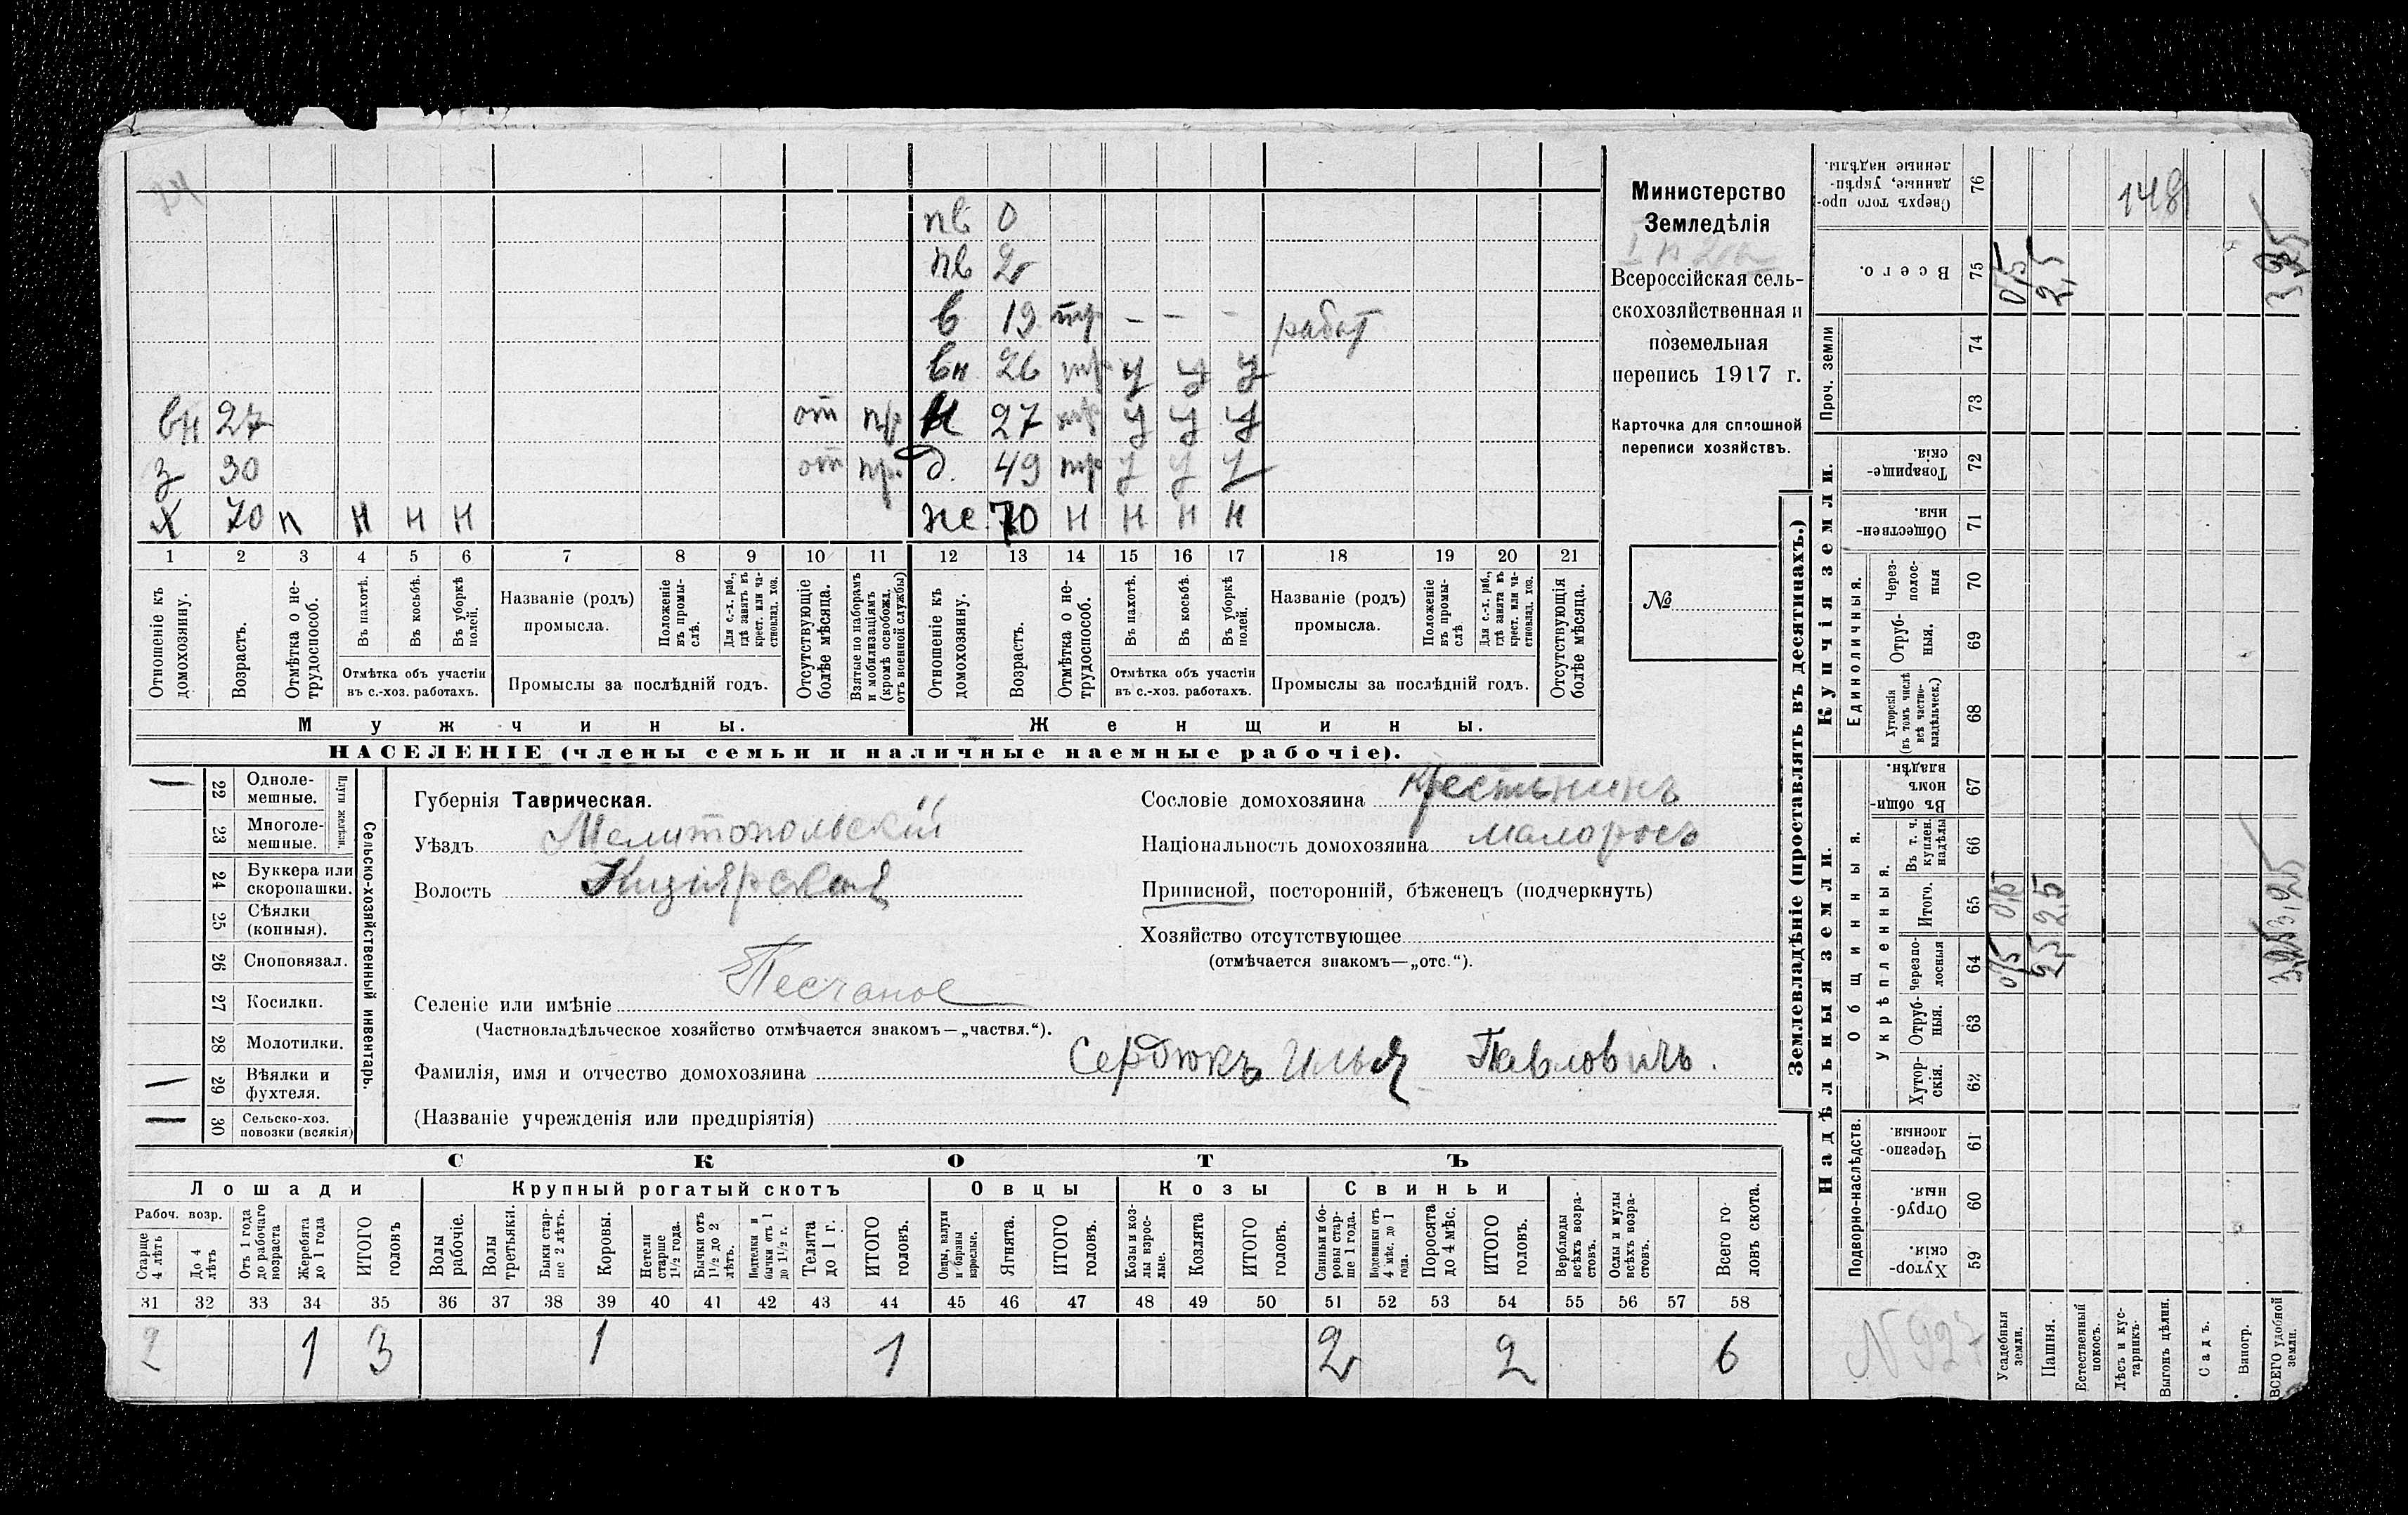 пв 0
пв 2
в 19 тр - - - работ
вн 26 тр у у у
вн 27 от пр н 27 тр у у у
з 30 от пр. д. 49 тр у у у
х 70 н н н н же 70 н н н н
1 2 3 4 5 6 7 8 9 10 11 12 13 14 15 16 17 18 19 20 21
Отношеніе къ домохозяину.
Возрастъ.
Отмѣтка о не-трудоспособ.
Въ пахотѣ.
Въ косьбѣ.
Въ уборкѣ полей.
Отмѣтка объ участіи
въ с.-хоз. работахъ.
Названіе (родъ)
промысла.
Положеніе въ промы-слѣ.
Для с.-х. раб., гдѣ занятъ въ крест. или ча-стновлад. хоз.
Промыслы за послѣдній годъ.
Отсутствующіе болѣе мѣсяца.
Взятые по наборамъ и мобилизаціямъ (кромѣ освобожд. отъ военной службы)
Отношеніе къ домохозяину.
Возрастъ.
Отмѣтка о не-трудоспособ.
Въ пахотѣ.
Въ косьбѣ.
Въ уборкѣ полей.
Отмѣтка объ участіи
въ с.-хоз. работахъ.
Названіе (родъ)
промысла.
Положеніе въ промы-слѣ
Для с.-х. раб., гдѣ занята въ крест. или ча-стновлад. хоз.
Промыслы за послѣдній годъ.
Отсутствующія болѣе мѣсяца.
Мужчины. Женщины.
НАСЕЛЕНІЕ (члены семьи и наличные наемные рабочіе).
Министерство
Земледѣлія
Всероссійская сель-
скохозяйственная и
поземельная
перепись 1917 г.
Карточка для сплошной
переписи хозяйствъ.
№
Сельско-хозяйственный инвентарь.
Плуги желѣзн.
22 Одноле-мешные.
23 Многоле-мешные.
24 Буккера или скоропашки.
25 Сѣялки (конныя).
26 Сноповязал.
27 Косилки.
28 Молотилки.
29 Вѣялки и фухтеля.
30 Сельско-хоз. повозки (всякія)
Губернія Таврическая.
Уѣздъ Мелитопольскій
Волость Кизіярская
Селеніе или имѣніе Песчаное
(Частновладѣльческое хозяйство отмѣчается знакомъ—„частвл.“).
Фамилія, имя и отчество домохозяина Сердюкъ Илья Павловичъ.
(Названіе учрежденія или предпріятія)
Сословіе домохозяина крестьянинъ
Національность домохозяина малороссъ
Приписной, посторонній, бѣженецъ (подчеркнуть)
Хозяйство отсутствующее
(отмѣчается знакомъ—„отс.“).
СКОТЪ
Лошади Крупный рогатый скотъ Овцы Козы Свиньи
Рабоч. возр.
Старше 4 лѣтъ
До 4 лѣтъ
Отъ 1 года до рабочаго возраста
Жеребята до 1 года
ИТОГО головъ
Волы рабочіе.
Волы третьяки.
Быки стар-ше 2 лѣтъ.
Коровы.
Нетели старше 1½ года.
Бычки отъ 1½ до 2 лѣтъ.
Подтелки и бычки отъ 1 до 1½ г.
Телята до 1 г.
ИТОГО головъ.
Овцы, валухи и бараны взрослые.
Ягнята.
ИТОГО головъ.
Козы и коз-лы взрос-лые.
Козлята
ИТОГО головъ.
Свиньи и бо-ровы стар-ше 1 года.
Подсвинки отъ 4 мѣс. до 1 года.
Поросята до 4 мѣс.
ИТОГО головъ.
Верблюды всѣхъ возра-стовъ.
Ослы и мулы всѣхъ возра-стовъ.
Всего го-ловъ скота.
31 32 33 34 35 36 37 38 39 40 41 42 43 44 45 46 47 48 49 50 51 52 53 54 55 56 57 58
2 1 3 1 1 2 2 6
Землевладѣніе (проставлять въ десятинахъ.)
Купчія земли.
Надѣльныя земли.
Проч. земли
Единоличныя.
Общинныя.
Укрѣпленныя.
Подворно-наслѣдств.
76 Сверхъ того про-данные, укрѣп-ленные надѣлы. 148
75 Всего. 0,75 2,5 3,25
74
73
72 Товарище-скія.
71 Обществен-ныя.
70 Через-полос-ныя
69 Отруб-ныя.
68 Хуторскія (въ томъ числѣ всѣ частно-владѣльческ.)
67 Въ общи-номъ владѣн.
66 Въ т. ч. куплен. надѣлы
65 Итого. 0,75 2,5 3,25
64 Черезпо-лосныя 0,75 2,5 3,25
63 Отруб-ныя.
62 Хутор-скія.
61 Черезпо-лосныя.
60 Отруб-ныя.
59 Хутор-скія.
N 927
Усадебныя земли.
Пашня.
Естественный покосъ.
Лѣсъ и кус-тарникъ.
Выгонъ цѣлин.
Садъ.
Виногр.
ВСЕГО удобной земли.